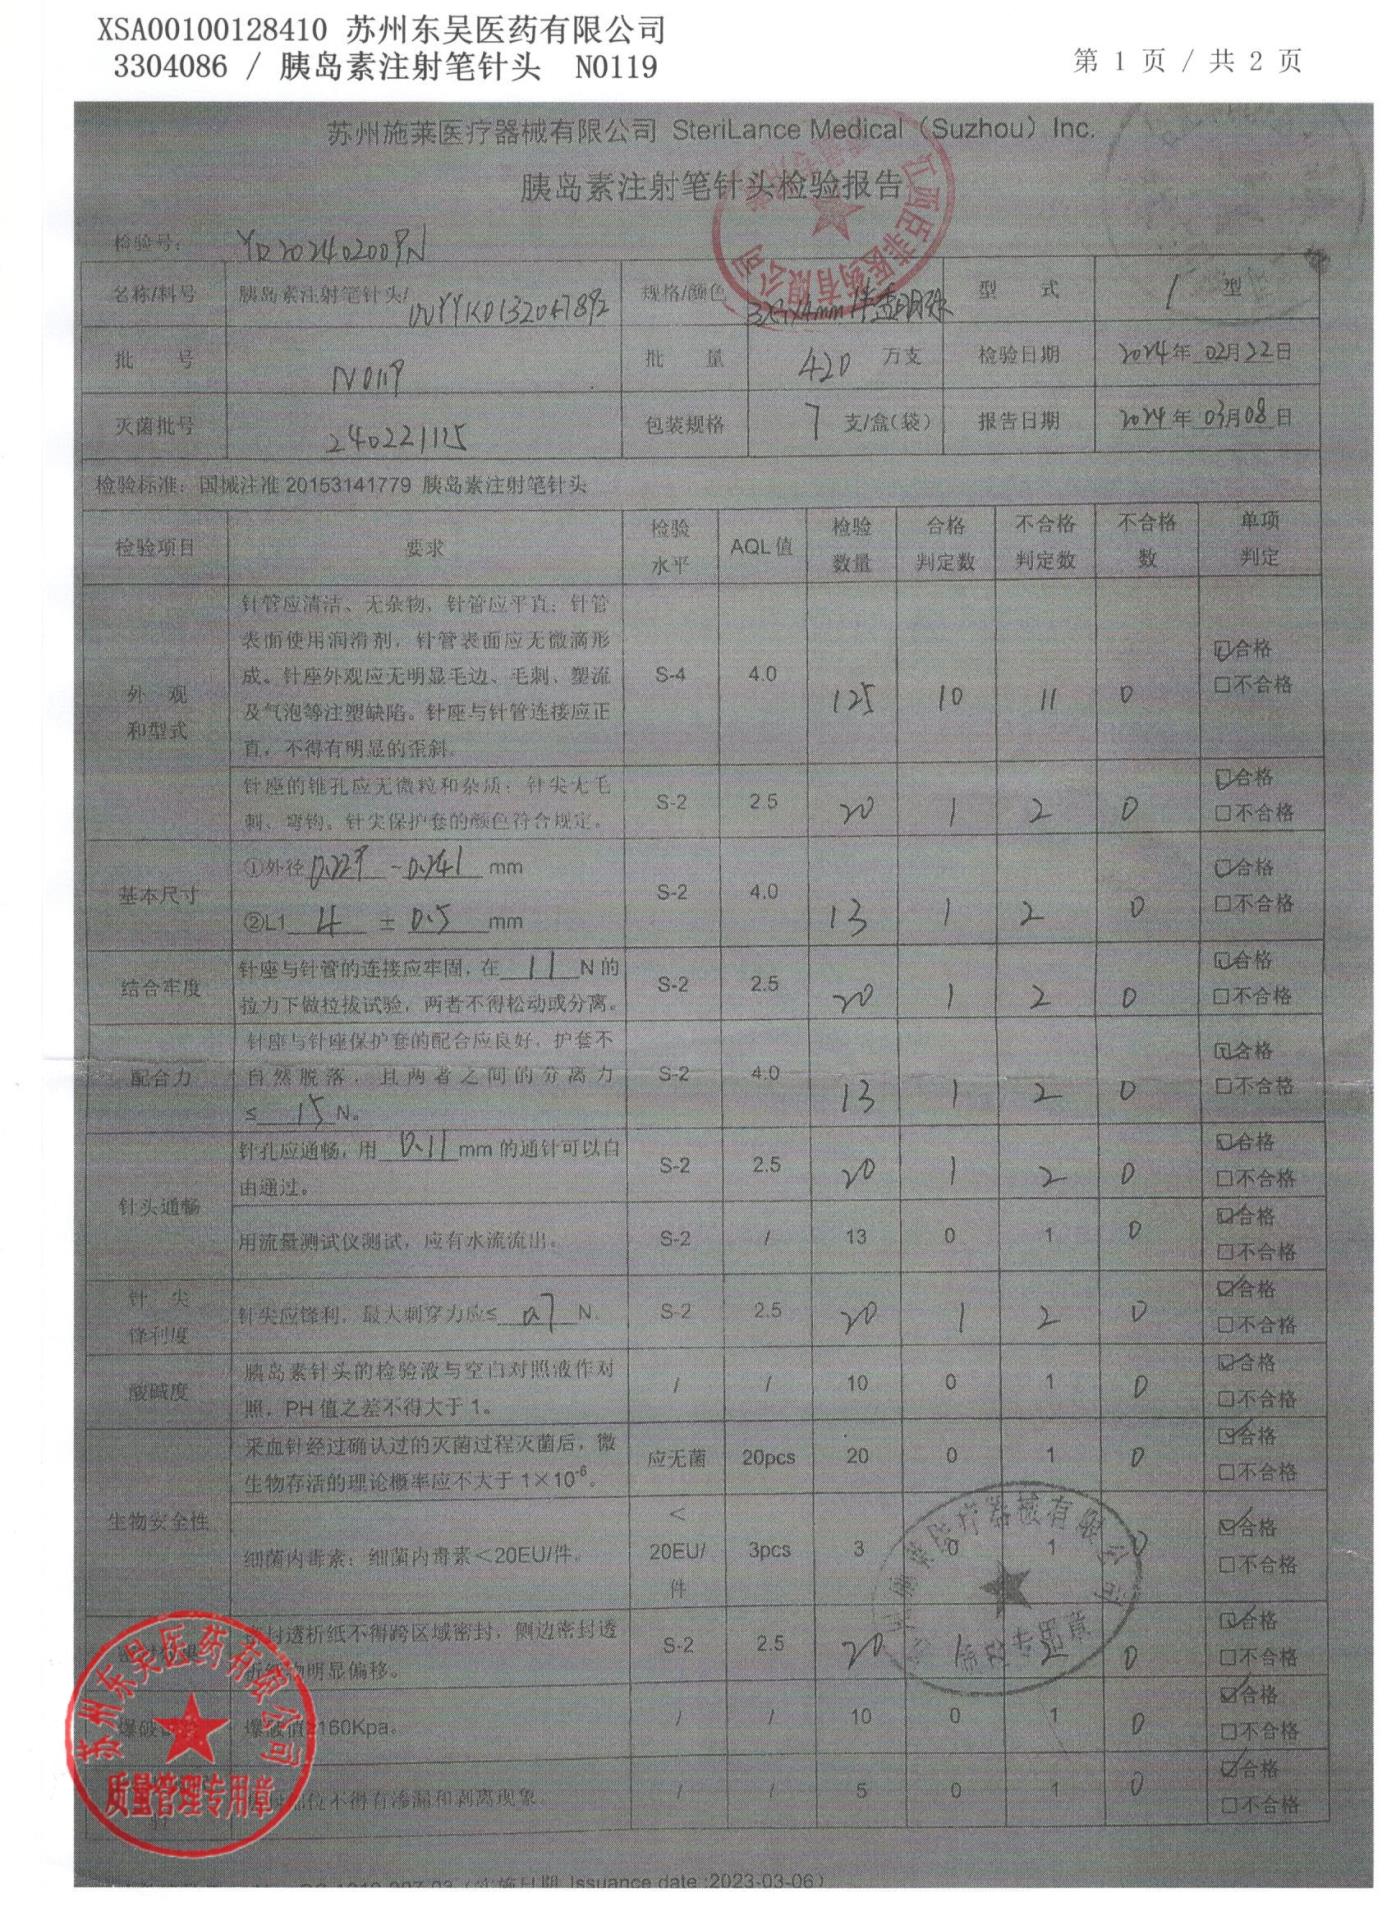 XSA00100128410 苏州东吴医药有限公司
3304086 / 胰岛素注射笔针头 N0119
第 1 页 / 共 2 页
苏州施莱医疗器械有限公司 SteriLance Medical（Suzhou）Inc.
胰岛素注射笔针头检验报告
检验号：
名称/料号 胰岛素注射笔针头/ 规格/颜色 型 式 1 型
批 号 N0119 批 量 420 万支 检验日期 2024年 02月22日
灭菌批号 240221115 包装规格 7 支/盒（袋） 报告日期 2024年 03月08日
检验标准：国械注准 20153141779 胰岛素注射笔针头
检验项目 要求 检验水平 AQL 值 检验数量 合格判定数 不合格判定数 不合格数 单项判定
外 观
和型式
针管应清洁、无杂物，针管应平直；针管
表面使用润滑剂，针管表面应无微滴形
成。针座外观应无明显毛边、毛刺、塑流
及气泡等注塑缺陷。针座与针管连接应正
直，不得有明显的歪斜。
S-4 4.0 125 10 11 0 ☑合格
□不合格
针座的锥孔应无微粒和杂质；针尖无毛
刺、弯钩。针尖保护套的颜色符合规定。
S-2 2.5 20 1 2 0 ☑合格
□不合格
基本尺寸
①外径 0.229 ~0.241 mm
②L1 4 ± 0.5 mm
S-2 4.0 13 1 2 0 ☑合格
□不合格
结合牢度
针座与针管的连接应牢固，在 11 N 的
拉力下做拉拔试验，两者不得松动或分离。
S-2 2.5 20 1 2 0 ☑合格
□不合格
配合力
针座与针座保护套的配合应良好，护套不
自然脱落，且两者之间的分离力
≤ 15 N。
S-2 4.0 13 1 2 0 ☑合格
□不合格
针头通畅
针孔应通畅，用 0.11 mm 的通针可以自
由通过。
S-2 2.5 20 1 2 0 ☑合格
□不合格
用流量测试仪测试，应有水流流出。
S-2 / 13 0 1 0 ☑合格
□不合格
针 尖
锋利度
针尖应锋利，最大刺穿力应≤ 0.7 N。
S-2 2.5 20 1 2 0 ☑合格
□不合格
酸碱度
胰岛素针头的检验液与空白对照液作对
照，PH 值之差不得大于 1。
/ / 10 0 1 0 ☑合格
□不合格
生物安全性
采血针经过确认过的灭菌过程灭菌后，微
生物存活的理论概率应不大于 1×10⁻⁶。
应无菌 20pcs 20 0 1 0 ☑合格
□不合格
细菌内毒素：细菌内毒素＜20EU/件。
＜
20EU/
件
3pcs 3 0 1 0 ☑合格
□不合格
封透析纸不得跨区域密封，侧边密封透
明显偏移。
S-2 2.5 20 1 2 0 ☑合格
□不合格
爆破
160Kpa。
/ / 10 0 1 0 ☑合格
□不合格
位不得有渗漏和剥离现象
/ / 5 0 1 0 ☑合格
□不合格
（实施日期 Issuance date :2023-03-06）
江西臣菲医药有限公司
苏州施莱医疗器械有限公司
质检专用章
苏州东吴医药有限公司
质量管理专用章